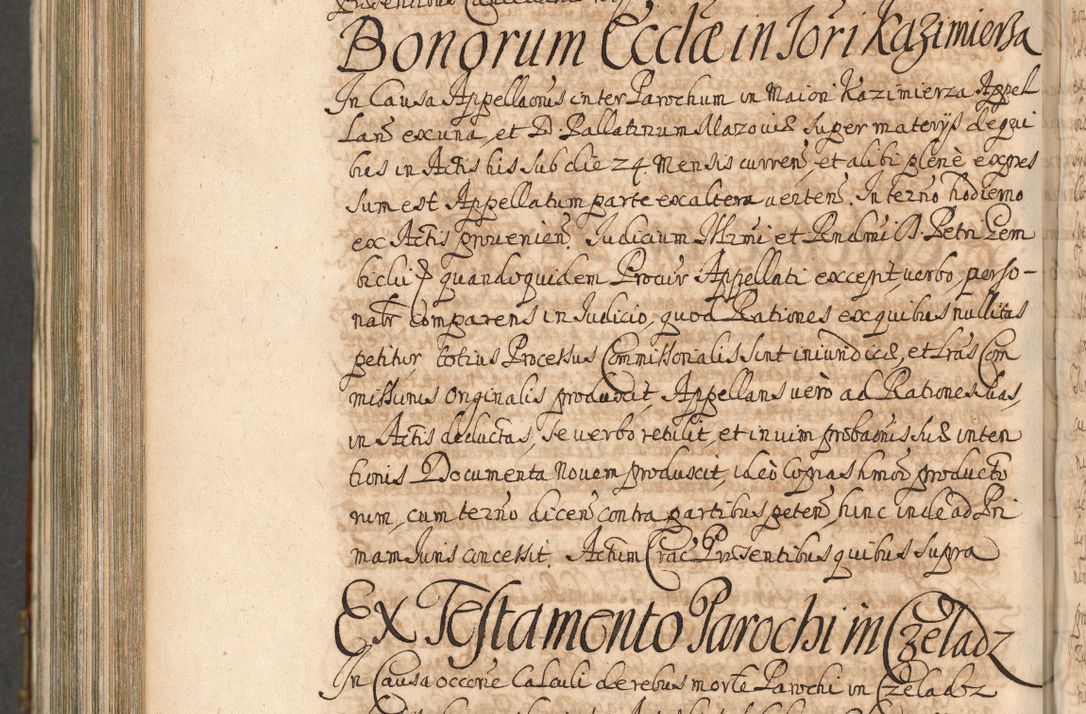 Bonorum Eccłæ in Iori Kazimierza
In Causa Appellaonis inter Parochum in Maiori Kazimierza Appel
lan̄ ex una, et D. Pallatinum Mazoviæ super materijs de qui
bus in Actis his sub die 24. Mensis curren̄, et alibi plenè expres
sum est Appellatum parte ex altera verten̄. In terno hodierno
ex Actis provenien̄. Iudicium Illrmi et Rndmi D. Petri Gem
bicki quandoquidem Procur Appellati excepit, verbo, perso-
nalr comparens in Iudicio, quod Rationes ex quibus nullitas
petitur, totius Processus Commissorialis sint iniundicæ, et Lras Com
missionis originalis produxit, Appellans verò ad Rationes suas,
in Actis deductas, se verbo retulit, et in vim probaonis suæ inten
tionis Documenta Novem produxit, ideò Copias hmoi producto
rum, cum terno dicen̄ contra partibus peten̄, hinc inde ad Pri
mam Iuris concessit. Actum Crac Præsentibus quibus supra
Ex Testamento Parochi in Czeladz
In Causa occone Calculi de rebus morte Parochi in Czeladz